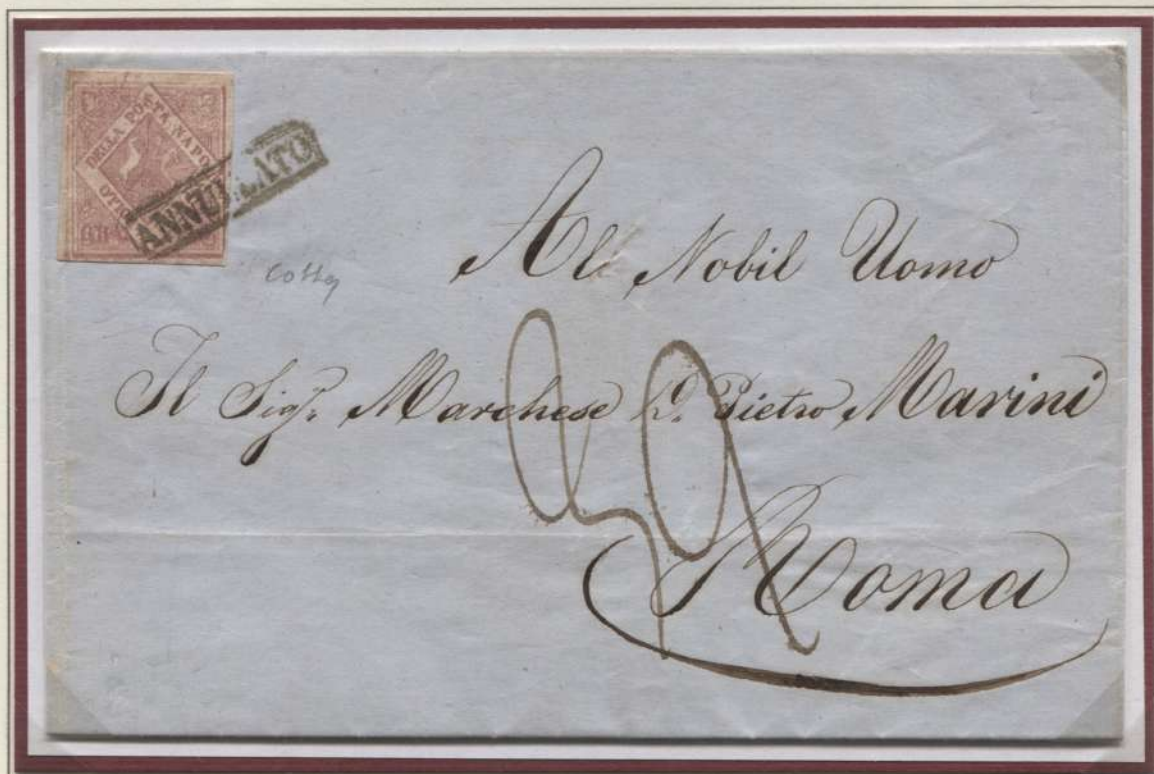 DELLA POSTA NAPO
ANNULLATO
Al Nobil Uomo
Il Sigr. Marchese D. Pietro Marini
Roma